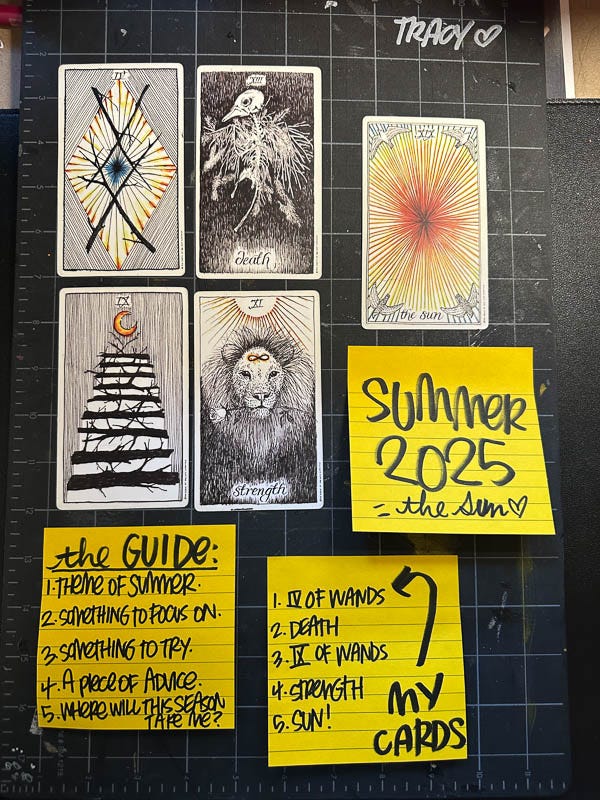 TRACY ♡
IV
XIII
death
XIX
the sun
IX
XI
strength
SUMMER
2025
= the Sun ♡
the GUIDE:
1. THEME OF SUMMER.
2. SOMETHING TO FOCUS ON.
3. SOMETHING TO TRY.
4. A PIECE OF ADVICE.
5. WHERE WILL THIS SEASON
TAKE ME?
1. IV OF WANDS
2. DEATH
3. IX OF WANDS
4. STRENGTH
5. SUN!
MY
CARDS